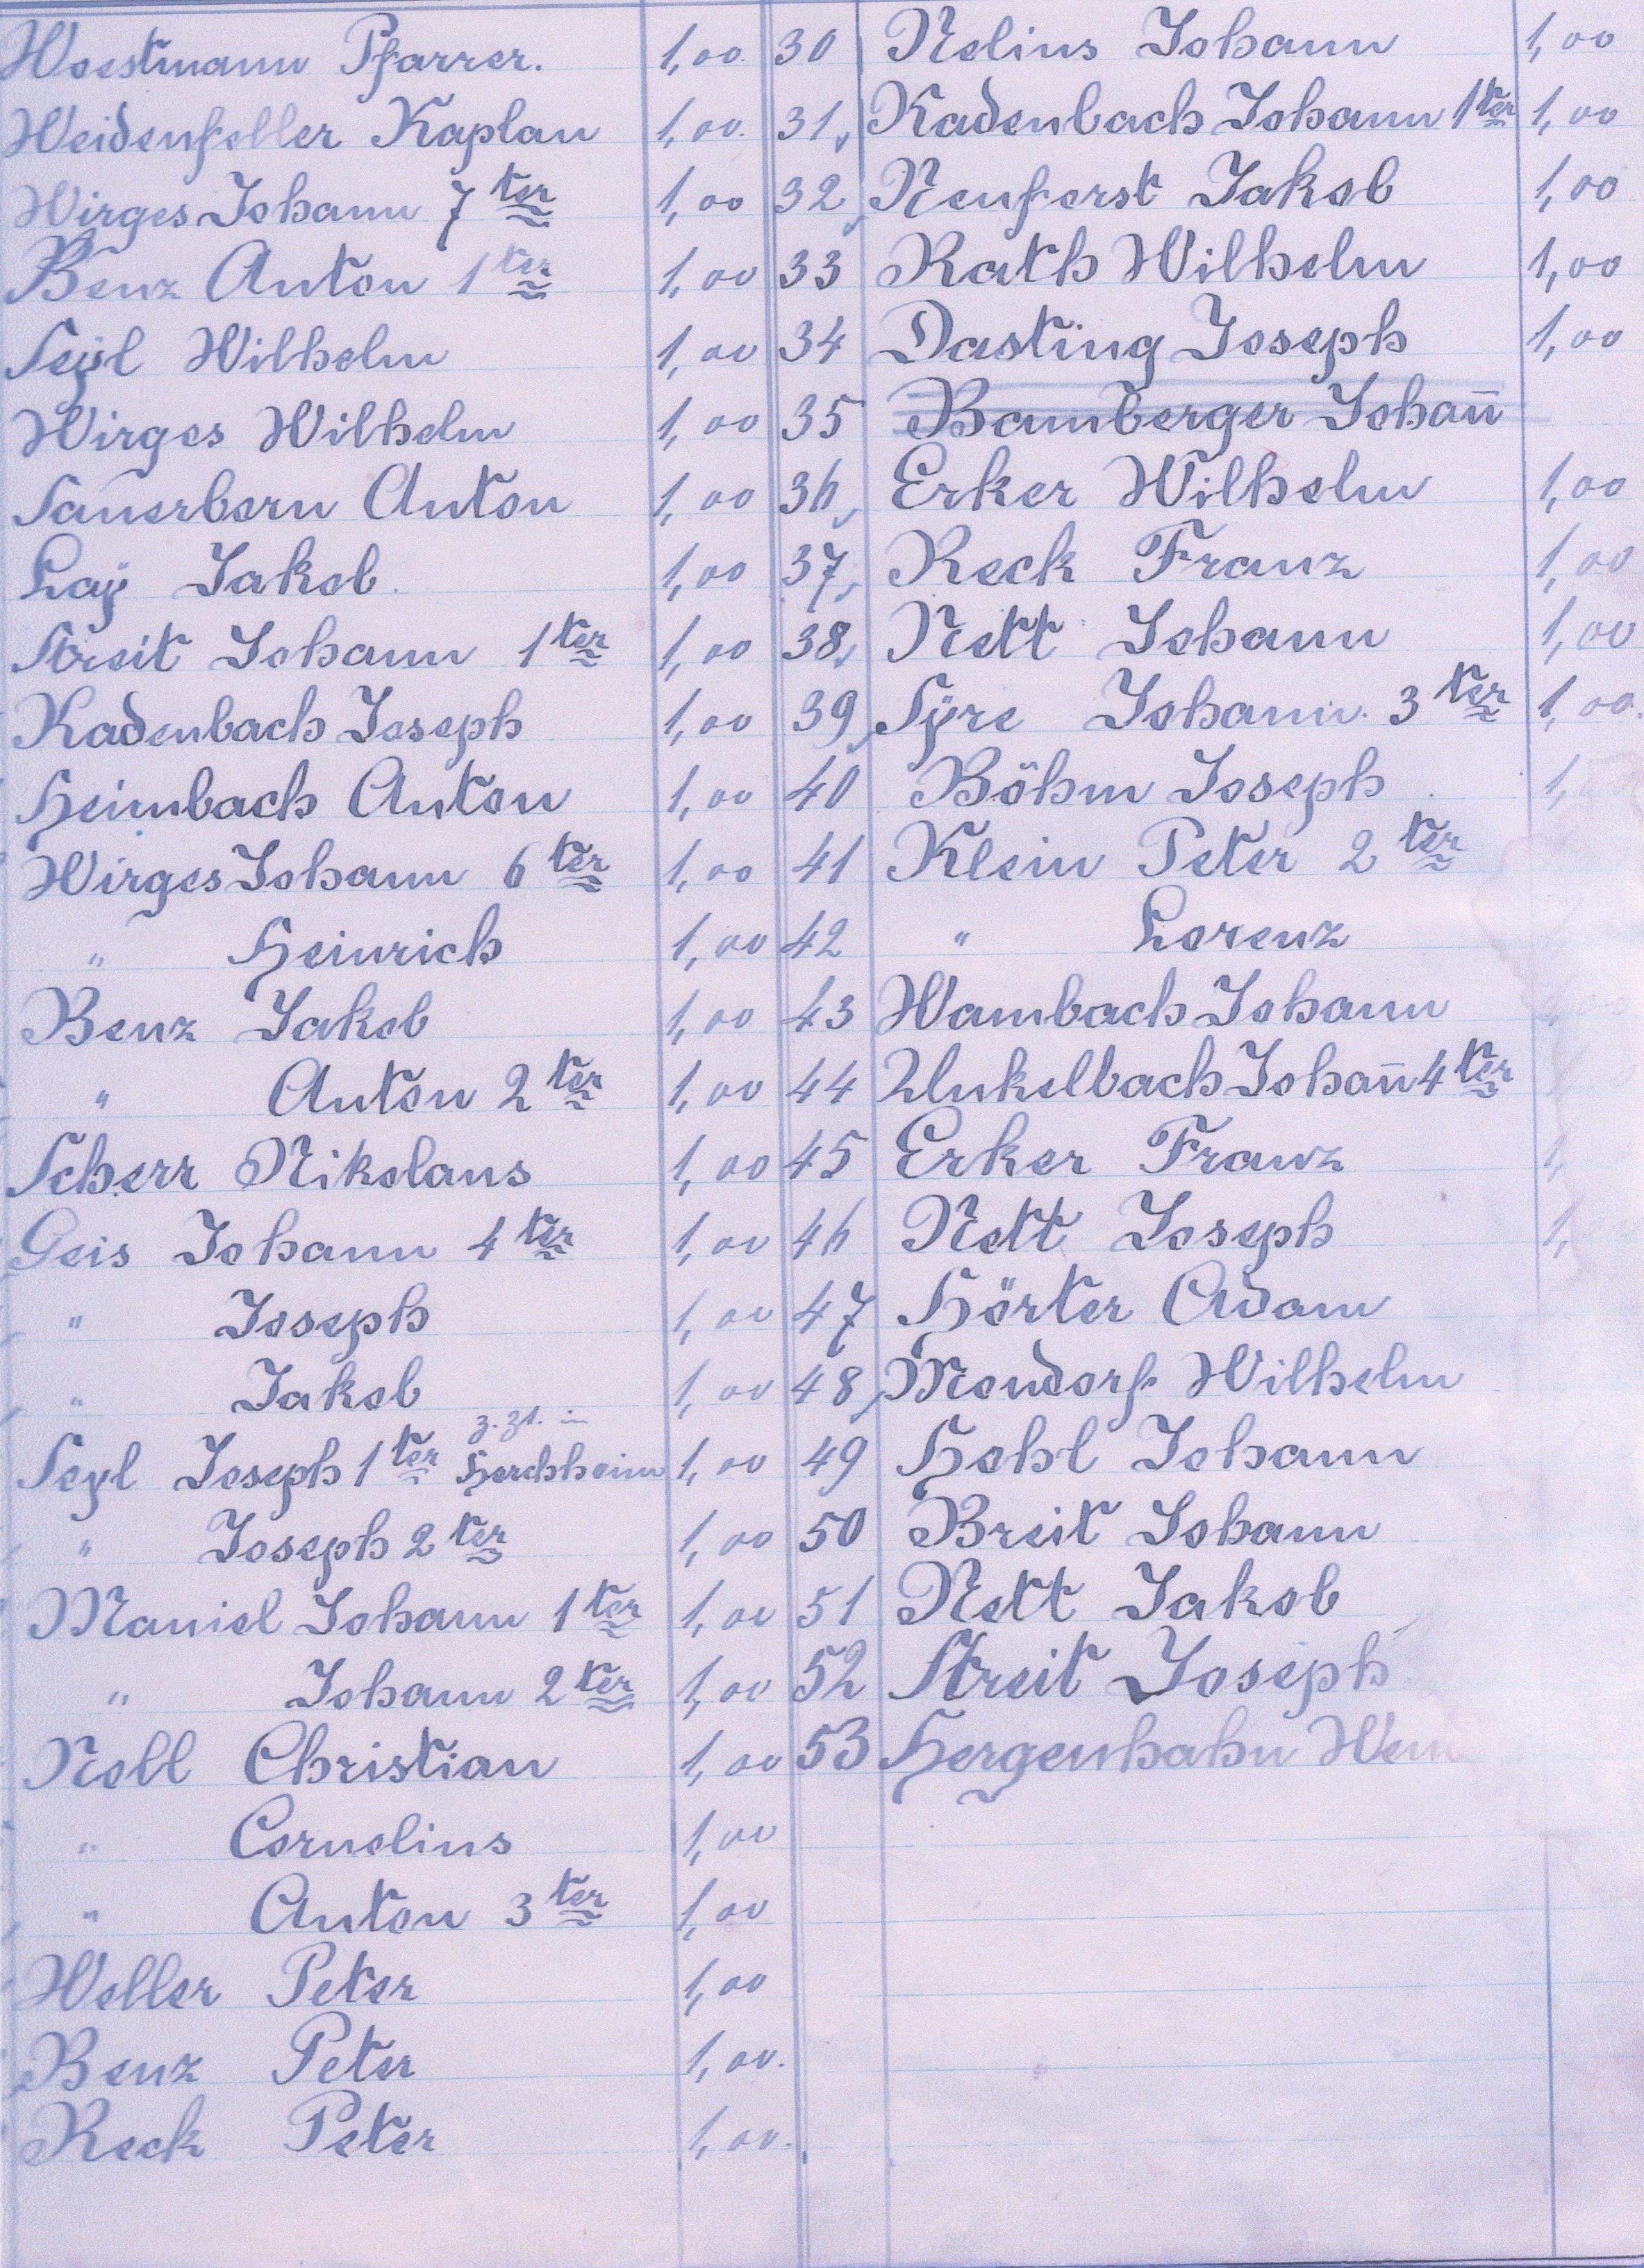 Woestmann Pfarrer. 1,00.
Weidenfeller Kaplan 1,00.
Wirges Johann 7ter 1,00
Benz Anton 1ter 1,00
Seÿl Wilhelm 1,00
Wirges Wilhelm 1,00
Sauerborn Anton 1,00
Laÿ Jakob. 1,00
Streit Johann 1ter 1,00
Kadenbach Joseph 1,00
Heimbach Anton 1,00
Wirges Johann 6ter 1,00
" Heinrich 1,00
Benz Jakob 1,00
" Anton 2ter 1,00
Scherr Nikolaus 1,00
Geis Johann 4ter 1,00
" Joseph 1,00
" Jakob 1,00
z. Zt. in
Seyl Joseph 1ter Horchheim 1,00
" Joseph 2ter 1,00
Maniel Johann 1ter 1,00
" Johann 2ter 1,00
Noll Christian 1,00
" Cornelius 1,00
" Anton 3ter 1,00
Weller Peter 1,00
Benz Peter 1,00.
Reck Peter 1,00.
30 Nelius Johann 1,00
31, Kadenbach Johann 1ter 1,00
32, Neuforst Jakob 1,00
33 Rath Wilhelm 1,00
34 Dasting Joseph 1,00
35 Bamberger Johan̄
36, Erker Wilhelm 1,00
37, Reck Franz 1,00
38, Nett Johann 1,00
39, Sÿre Johann. 3ter 1,00.
40 Böhm Joseph 1,
41 Klein Peter 2ter
42 " Lorenz
43 Wambach Johann
44 Unkelbach Johan̄ 4ter
45 Erker Franz 1,
46 Nett Joseph 1,
47 Hörter Adam
48, Mondorf Wilhelm
49 Hohl Johann
50 Breit Johann
51 Nett Jakob
52 Streit Joseph
53 Hergenhahn